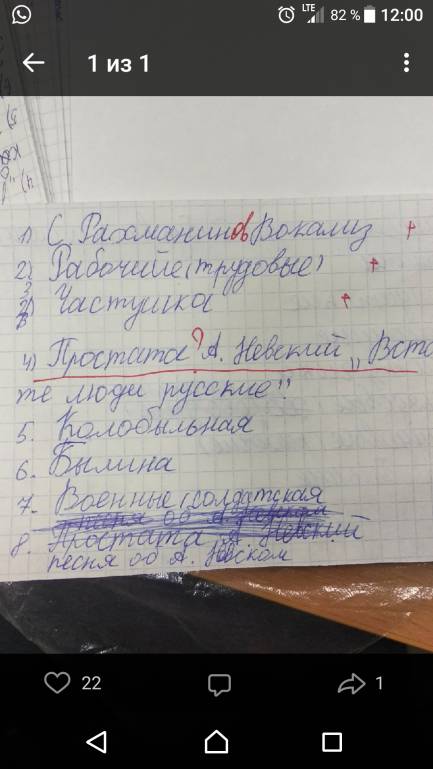 LTE 82 % 12:00
1 из 1
1) С. Рахманинов Вокализ +
2) Рабочийе (трудовые) +
3) Частушка +
4) Простата? А. Невский „Вста
те люди русские"
5. Колобыльная
6. Былина
7. Военные (солдатская
8. Простата А. Невский
песня об А. Невском
22
1